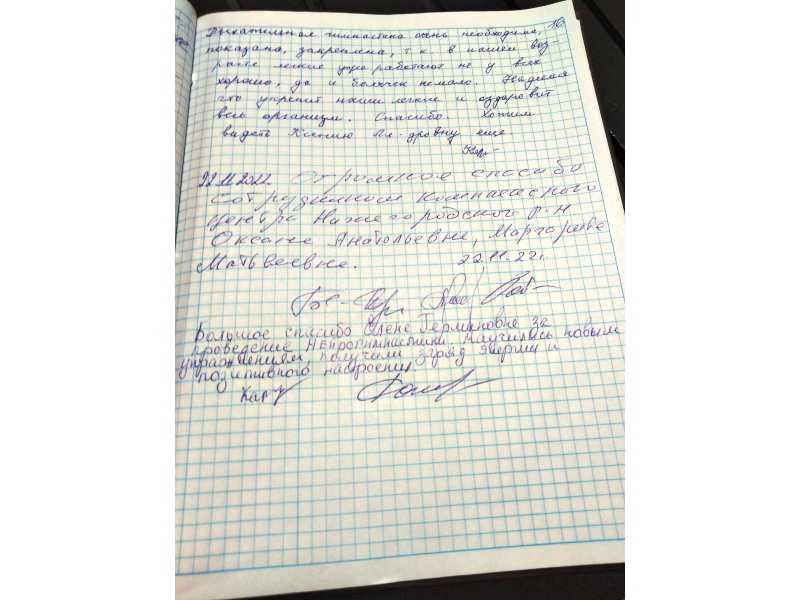 16
Дыхательная гимнастика очень необходима,
показана, закреплена, т.к. в нашем воз-
расте легкие уже работают не у всех
хорошо, да и болячек немало. Надеемся
что укрепит наши легкие и оздоровит
весь организм. Спасибо. Хотим
видеть Ксению еще
22.11.2022. Огромное спасибо
сотрудникам
центра Нижегородского р-н
Оксане Анатольевне, Маргарите
Матвеевне. 22.11.22г.
Большое спасибо Елене Германовне за
проведение Нейрогимнастики. Научились новым
упражнениям, получили заряд энергии и
позитивного настроения